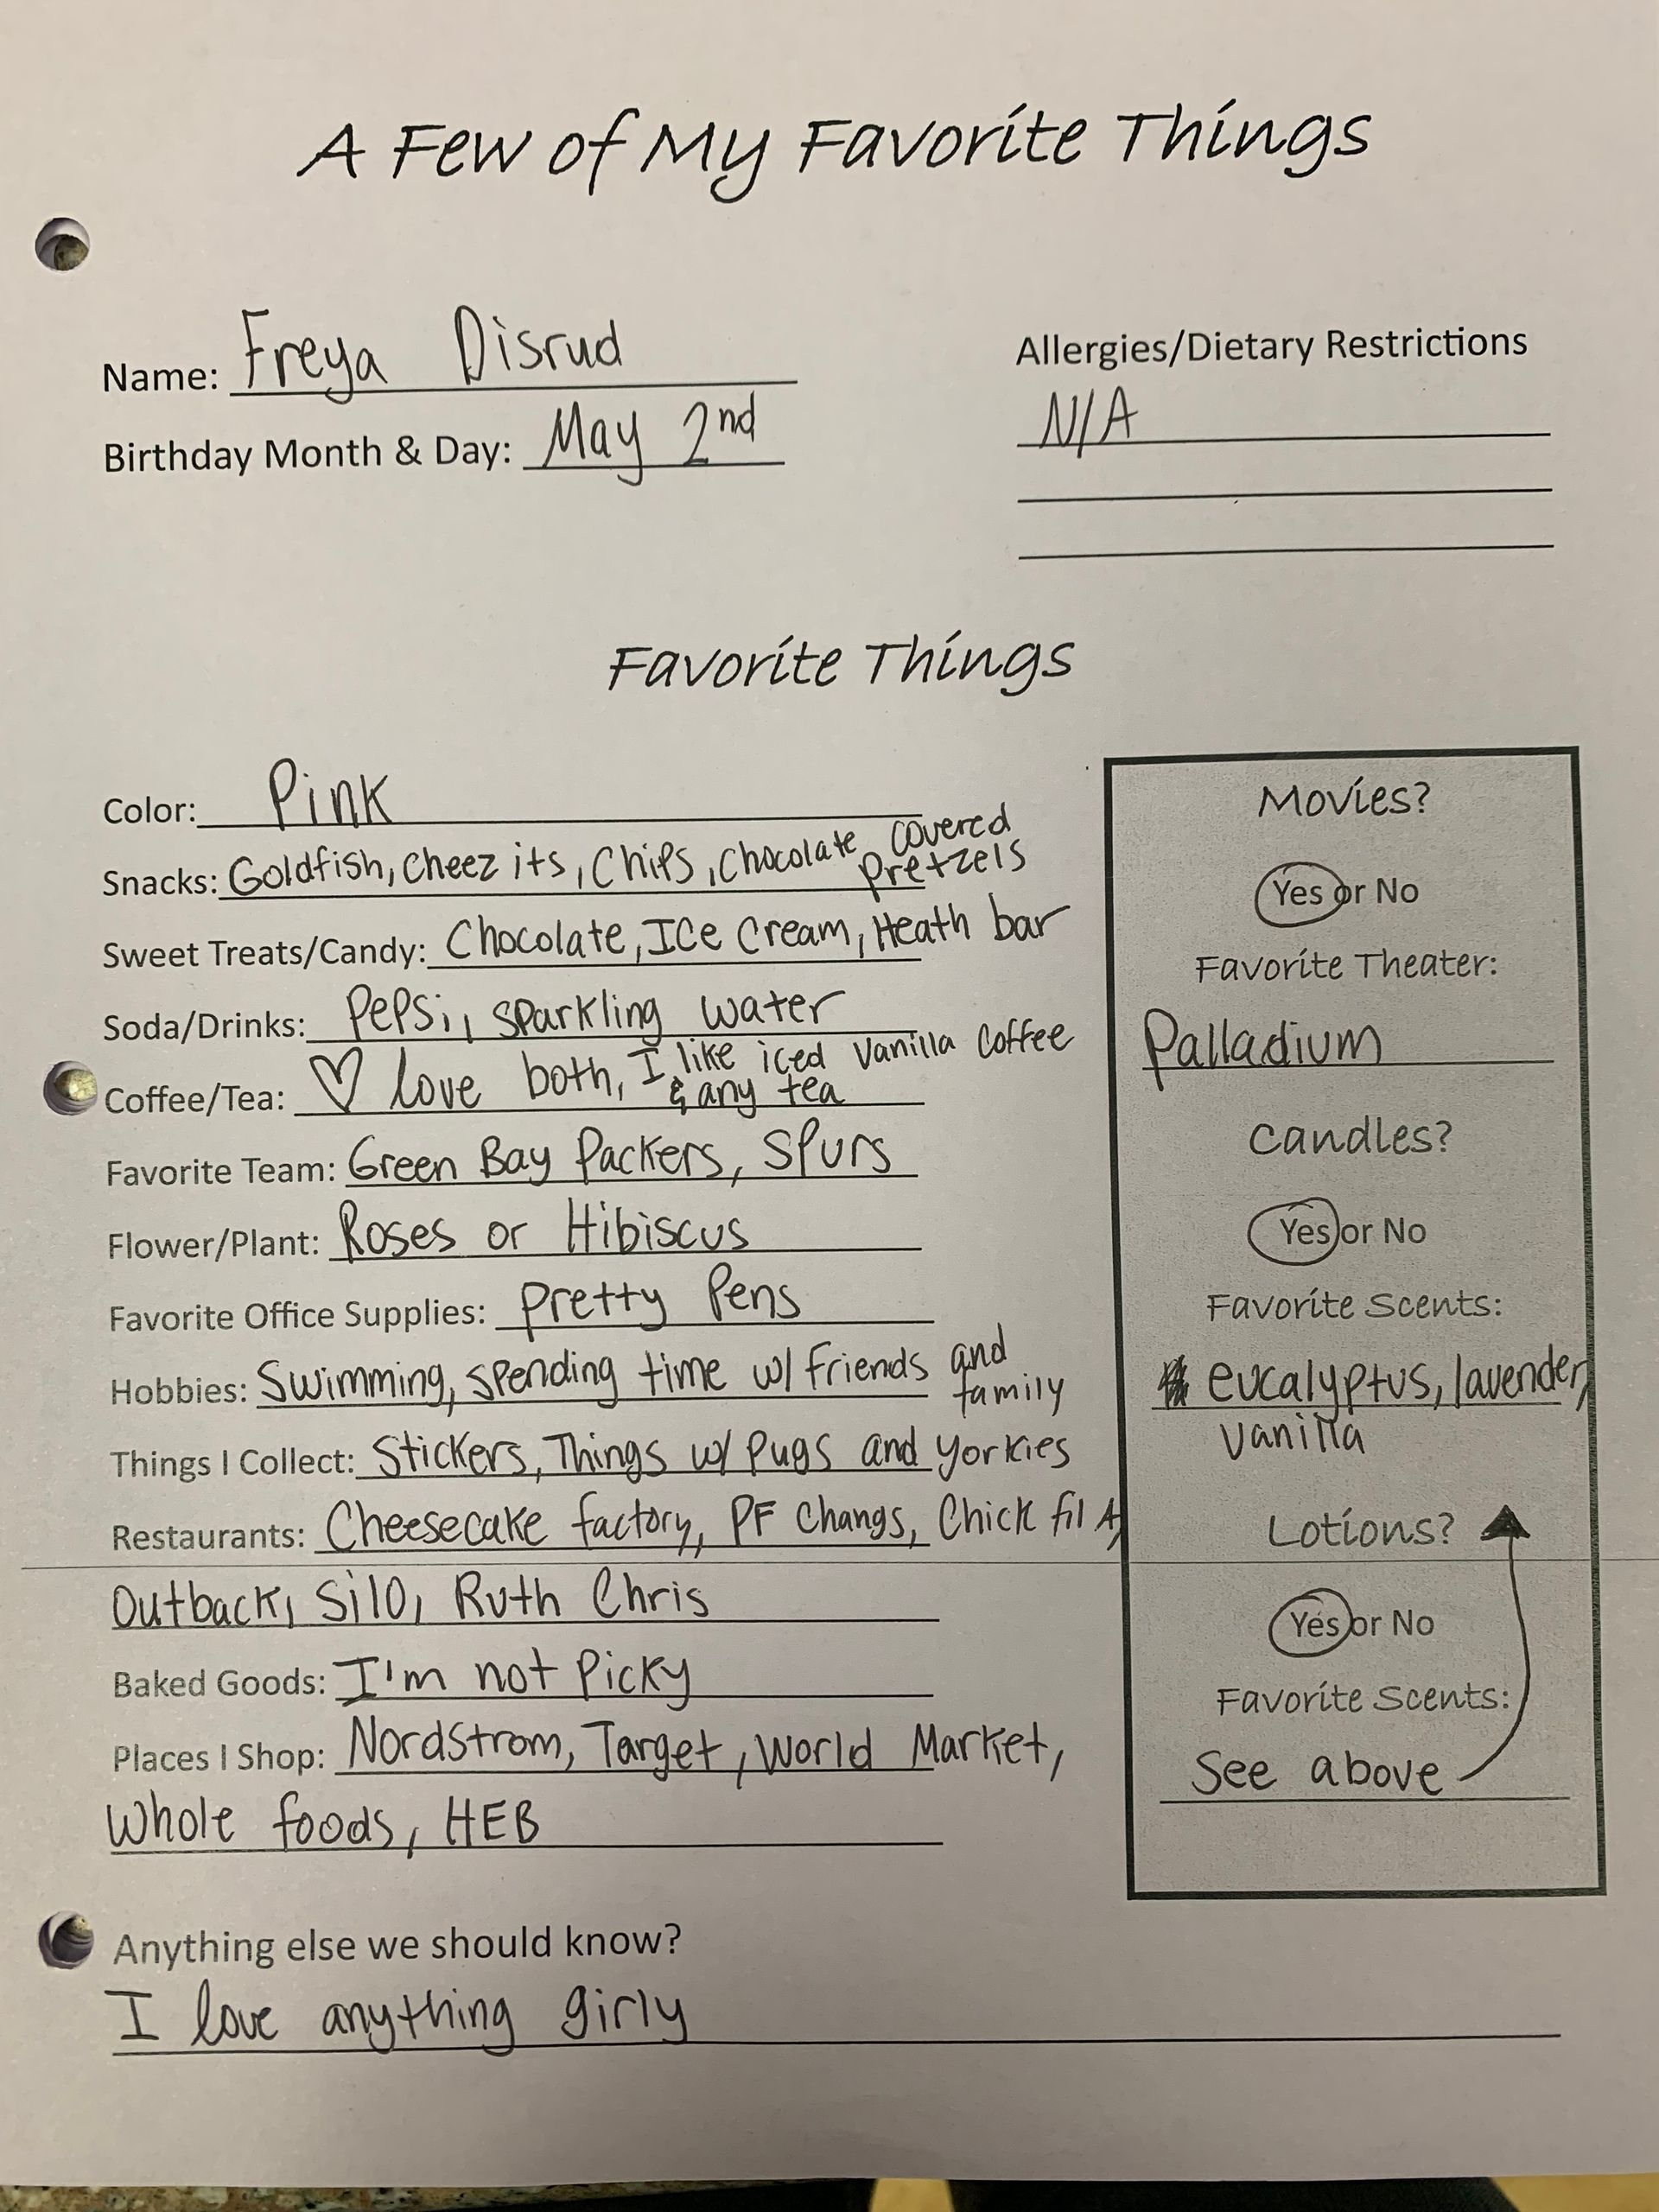 A Few of My Favorite Things
Name: Freya Disrud
Birthday Month & Day: May 2nd
Allergies/Dietary Restrictions
N/A
Favorite Things
Color: Pink
Snacks: Goldfish, Cheez its, Chips, Chocolate covered
pretzels
Sweet Treats/Candy: Chocolate, Ice Cream, Heath bar
Soda/Drinks: Pepsi, sparkling water
Coffee/Tea: ♡ love both, I like iced vanilla coffee
& any tea
Favorite Team: Green Bay Packers, Spurs
Flower/Plant: Roses or Hibiscus
Favorite Office Supplies: Pretty Pens
Hobbies: Swimming, spending time w/ friends and
family
Things I Collect: Stickers, Things w/ pugs and yorkies
Restaurants: Cheesecake factory, PF Changs, Chick fil A,
Outback, Silo, Ruth Chris
Baked Goods: I'm not Picky
Places I Shop: Nordstrom, Target, World Market,
Whole foods, HEB
Movies?
Yes or No
Favorite Theater:
Palladium
Candles?
Yes or No
Favorite Scents:
eucalyptus, lavender,
vanilla
Lotions?
Yes or No
Favorite Scents:
See above
Anything else we should know?
I love anything girly